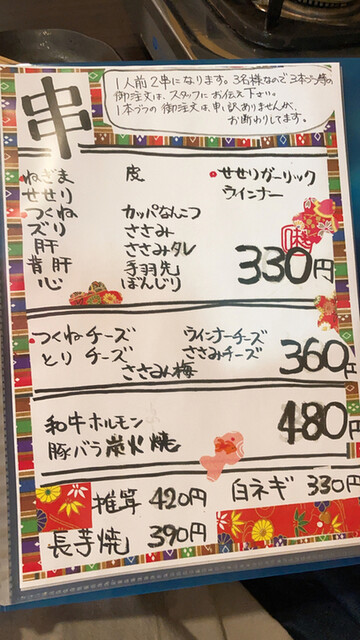 串
1人前2串になります。3名様なので3本づつ等の
御注文は、スタッフにお伝え下さい。
1本づつの御注文は、申し訳ありませんが、
お断わりしてます。
ねぎま 皮 せせりガーリック
せせり ウインナー
つくね カッパなんこつ
ズリ ささみ
肝 ささみタレ
背肝 手羽先
心 ぼんじり
330円
つくねチーズ ウインナーチーズ
とりチーズ ささみチーズ
ささみ梅
360円
和牛ホルモン
豚バラ炭火焼
480円
椎茸 420円 白ネギ 330円
長芋焼 390円